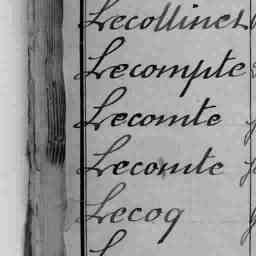 Lecollinet
Lecompte
Lecomte
Lecomte
Lecoq